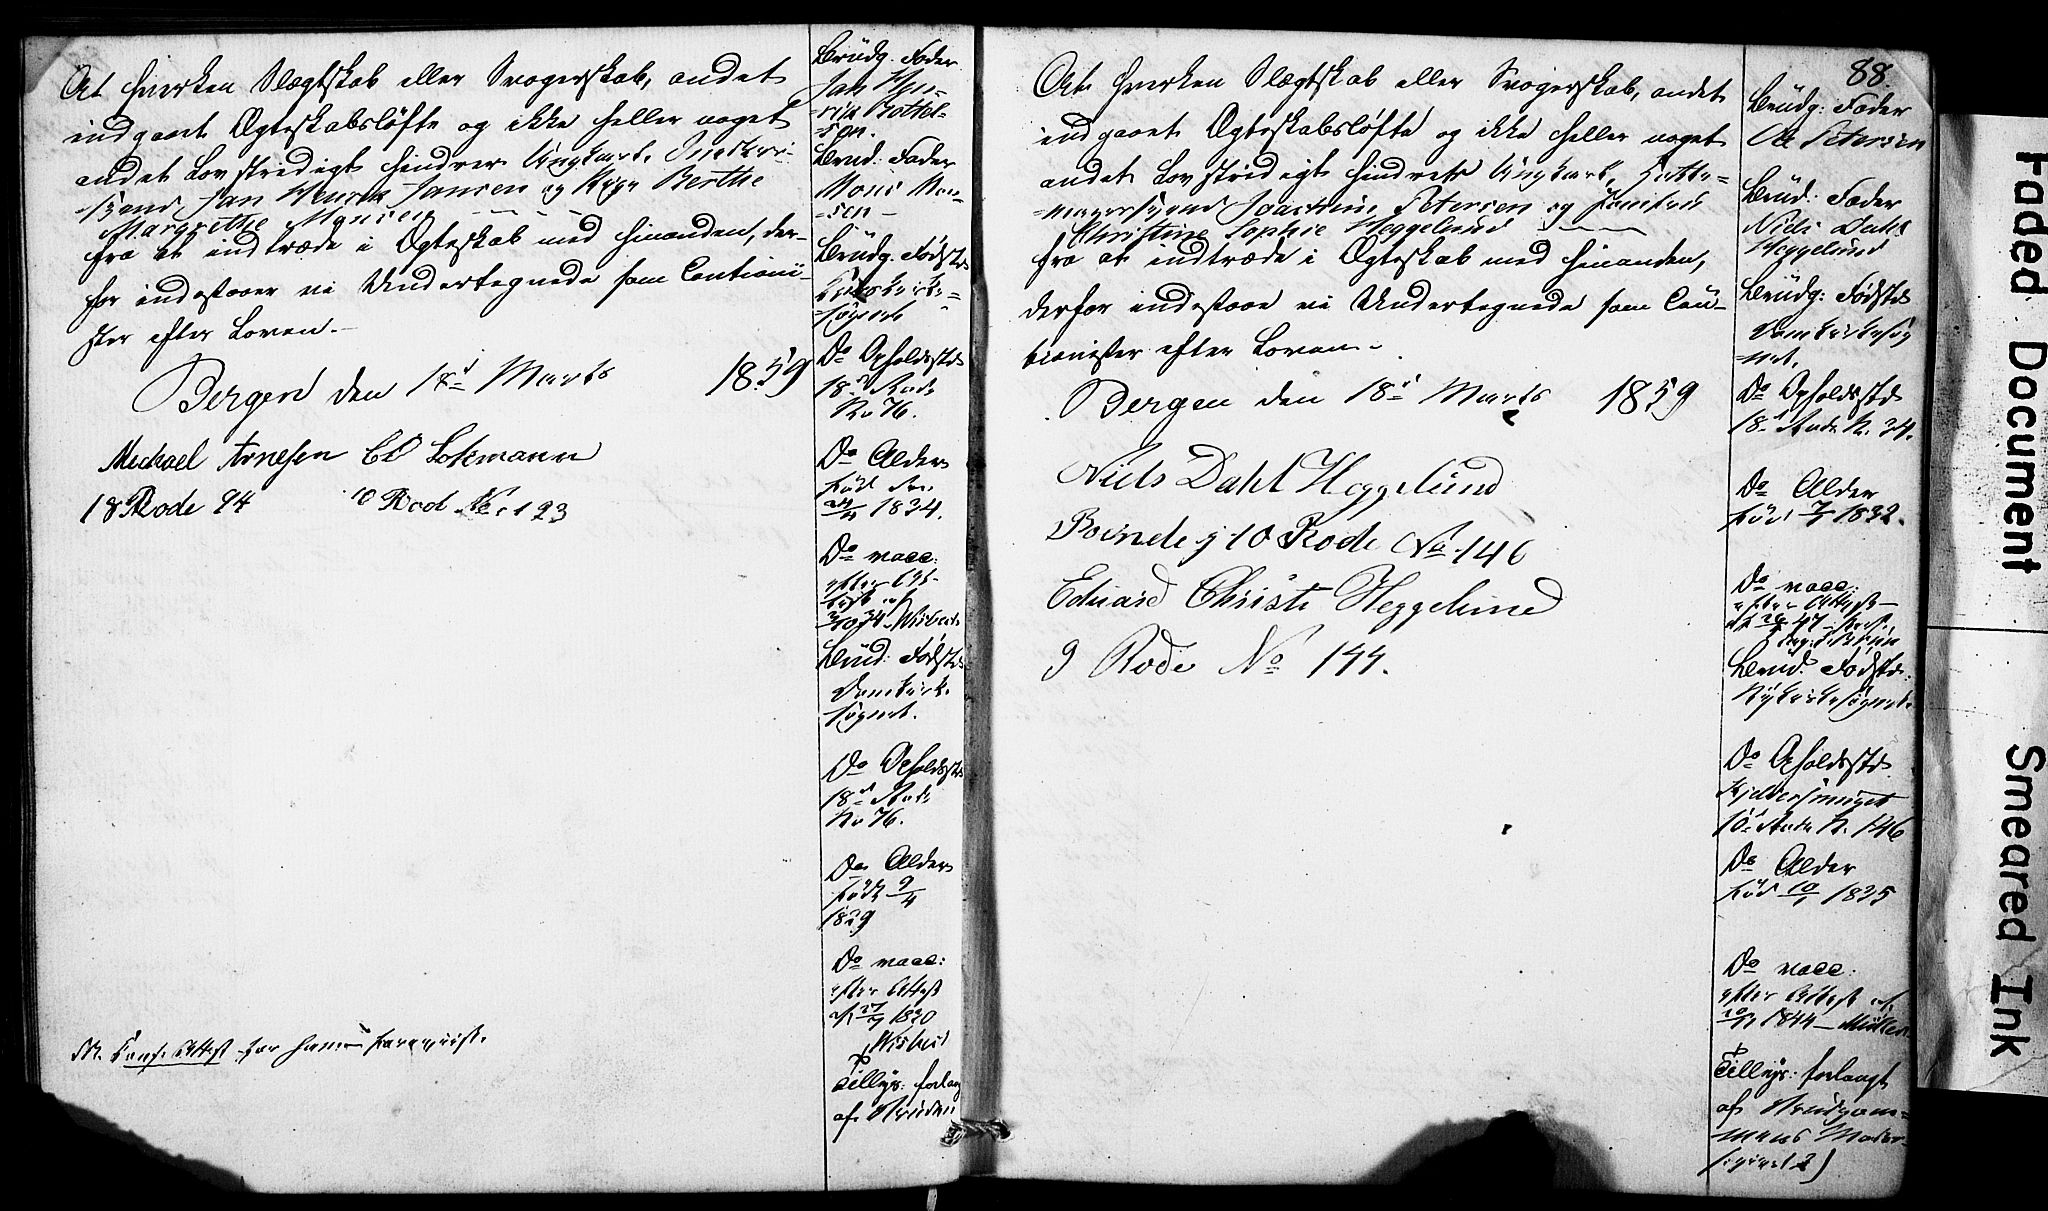 At hverken Slægtskab eller Svogerskab, andet
indgaaet Ægteskabsløfte og ikke heller noget
andet Lovstridigt hindrer Ungkarl,
Jan Henrik Jansen og Pige Berthe
Margrethe Monsen
fra at indtræde i Ægteskab med hinanden, der-
for indestaaer vi Undertegnede som Cautioni-
ster efter Loven.
Bergen den 18d Marts 1859
Michael Arnesen
18 Rode 94 10 Rod No 123
M. Conf. Attest for
Brudg. Fader
Jan Hen-
rik
-sen.
Brud: Fader
Mons Mon-
-sen
Brudg. Fødstd
Korskirke-
sognet
Do Opholdsstd
18d Rode
No 76.
Do Alder
født den
1834.
Do vacc:
efter Att-
est af
Brud: Fødstd
Domkirke-
sognet.
Do Opholdsstd
18d Rode
No 76.
Do Alder
født 9/4
1829
Do vacc:
efter Attest
af 27/7 1830
Wisbech
Tillys: forlang
af Bruden
88.
At hverken Slægtskab eller Svogerskab, andet
indgaaet Ægteskabsløfte og ikke heller noget
andet Lovstridigt hindrer Ungkarl, Hatte-
=magersvend Joachim Petersen og
Christine Sophie Heggelund
fra at indtræde i Ægteskab med hinanden,
derfor indestaae vi Undertegnede som Cau-
tionister efter Loven
Bergen den 18d Marts 1859
Niels Dahl Heggelund
Boende i 10 Rode No 146
Eduard Christi Heggelund
9 Rode No 144.
Brudg: Fader
Ole Petersen
Brud: Fader
Niels Dahl
Heggelund
Brudg: Fødstd
Domkirkesog
-net,
Do Opholdsstd
18d Rode N. 34.
Do Alder
født 1832.
Do vacc:
efter Attest
Brud: Fødstd:
Nykirkesognet
Do Opholdsstd
10d Rode N. 146
Do Alder
Født 10/1 1835
Do vacc:
efter Attest af
1844 - Müller
Tillys: forlangt
af Brudgom-
mens Moder
Faded Document
Smeared Ink